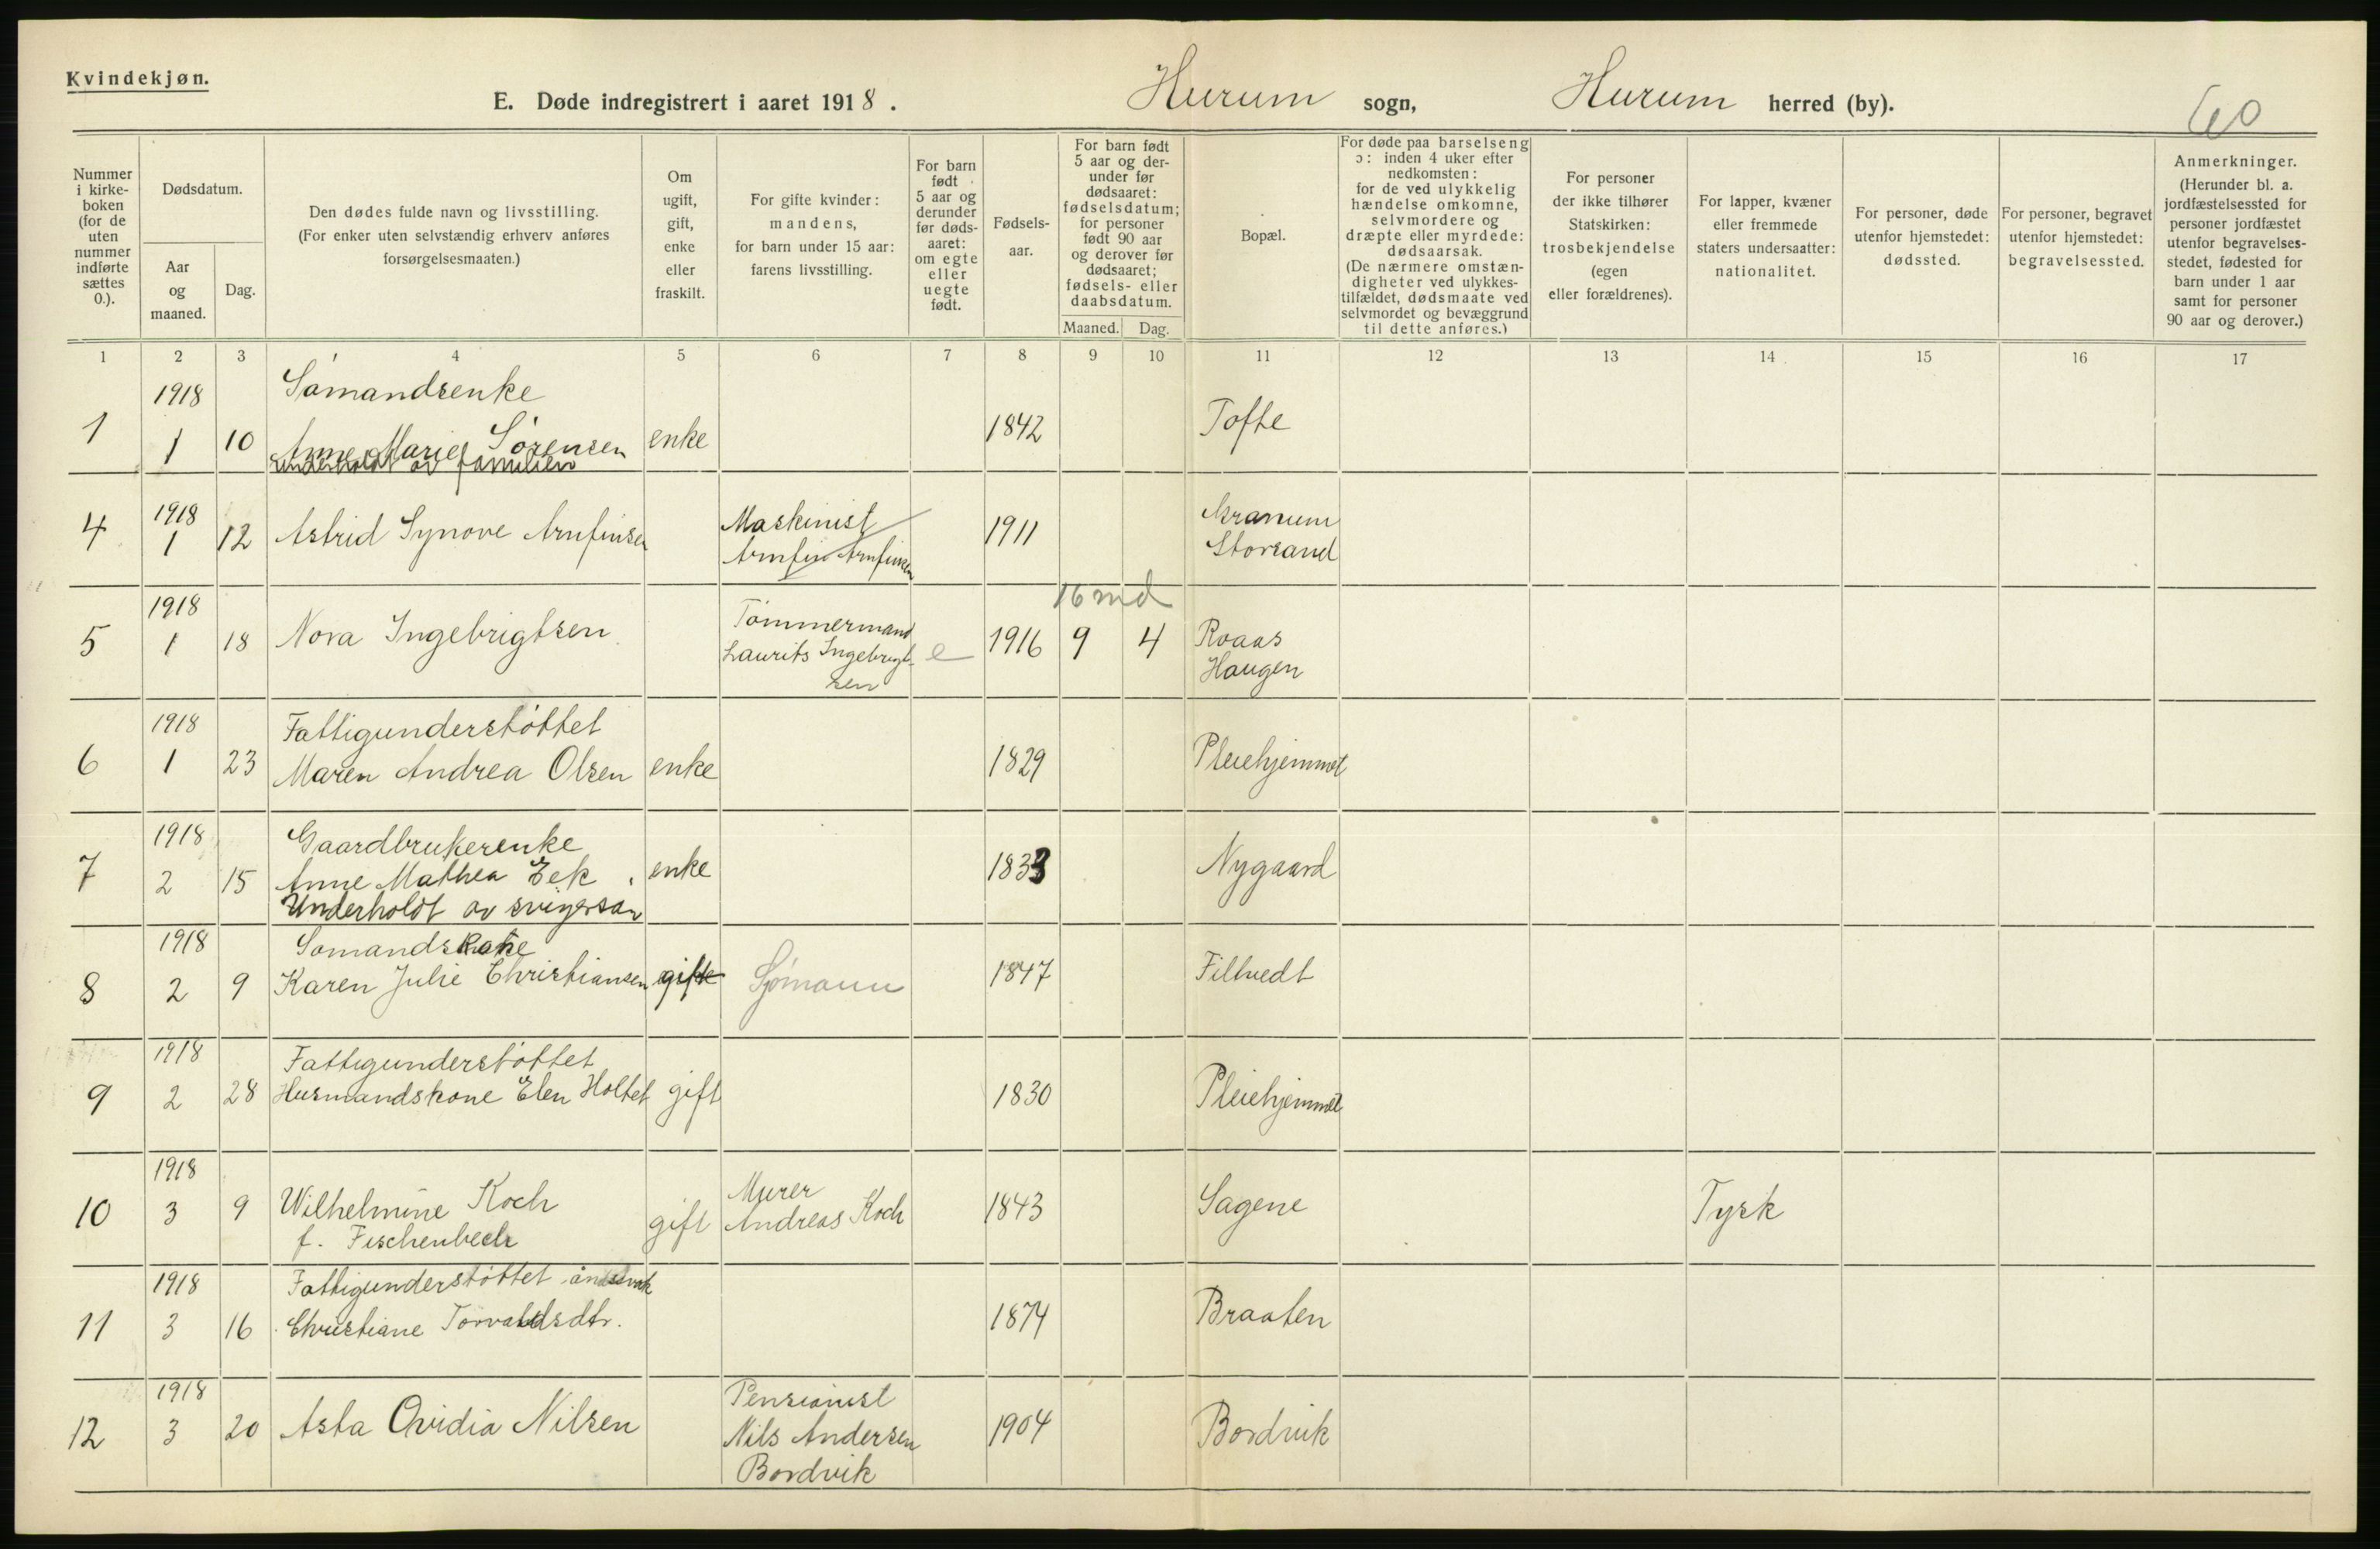 Kvindekjøn.
E. Døde indregistrert i aaret 1918. Hurum sogn, Hurum herred (by).
60
Nummer i kirke- boken (for de uten nummer indførte sættes 0.).
Dødsdatum.
Aar og maaned.
Dag.
Den dødes fulde navn og livsstilling.
(For enker uten selvstændig erhverv anføres
forsørgelsesmaaten.)
Om ugift, gift, enke eller fraskilt.
For gifte kvinder:
mandens,
for barn under 15 aar:
farens livsstilling.
For barn født 5 aar og derunder før døds- aaret: om egte eller uegte født.
Fødsels- aar.
For barn født 5 aar og der- under før dødsaaret: fødselsdatum; for personer født 90 aar og derover før dødsaaret; fødsels- eller daabsdatum.
Maaned. Dag.
Bopæl.
For døde paa barselseng ɔ: inden 4 uker efter nedkomsten: for de ved ulykkelig hændelse omkomne, selvmordere og dræpte eller myrdede: dødsaarsak. (De nærmere omstæn- digheter ved ulykkes- tilfældet, dødsmaate ved selvmordet og bevæggrund til dette anføres.)
For personer der ikke tilhører Statskirken: trosbekjendelse (egen eller forældrenes).
For lapper, kvæner eller fremmede staters undersaatter: nationalitet.
For personer, døde utenfor hjemstedet: dødssted.
For personer, begravet utenfor hjemstedet: begravelsessted.
Anmerkninger. (Herunder bl. a. jordfæstelsessted for personer jordfæstet utenfor begravelses- stedet, fødested for barn under 1 aar samt for personer 90 aar og derover.)
1 2 3 4 5 6 7 8 9 10 11 12 13 14 15 16 17
1918 Sømandsenke
1 1 10 Anne Marie Sørensen enke 1842 Tofte
underholdt av familien
1918 Maskinist Storsand
4 1 12 Astrid Synøve Arnfinsen Arnfin Arnfinsen 1911
16 md
1918 Tømmermand
5 1 18 Nora Ingebrigtsen Laurits Ingebrigt- e 1916 9 4 Raaas
sen Haugen
1918 Fattigunderstøttet
6 1 23 Maren Andrea Olsen enke 1829 Pleiehjemmet
1918 Gaardbrukerenke
7 2 15 Anne Mathea Eek enke 1833 Nygaard
Underholdt av svigersøn
1918 Sømandskone
8 2 9 Karen Julie Christiansen gift Sjømann 1847 Filtvedt
1918 Fattigunderstøttet
9 2 28 Husmandskone Elen Holtet gift 1830 Pleiehjemmet
1918 Murer
10 3 9 Wilhelmine Koch gift Andreas Koch 1843 Sagene Tysk
f. Fischenbeck
1918 Fattigunderstøttet åndssvak
11 3 16 Christiane Torvaldsdtr. 1874 Braaten
1918 Pensionist
12 3 20 Asta Ovidia Nilsen Nils Andersen 1904 Bordvik
Bordvik